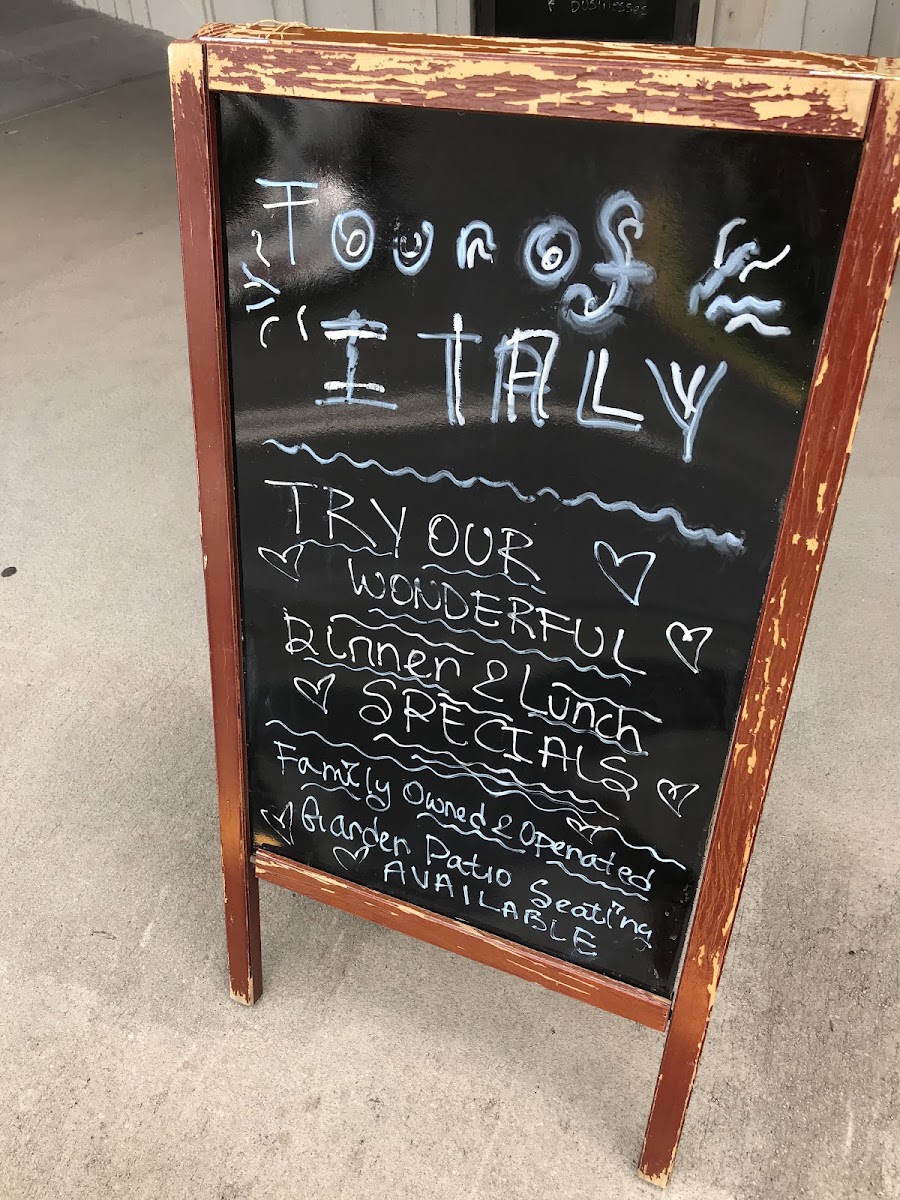 & BUSINESSES
Tour of
ITALY
TRY OUR
WONDERFUL
Dinner & Lunch
SPECIALS
Family Owned & Operated
Garden Patio Seating
AVAILABLE